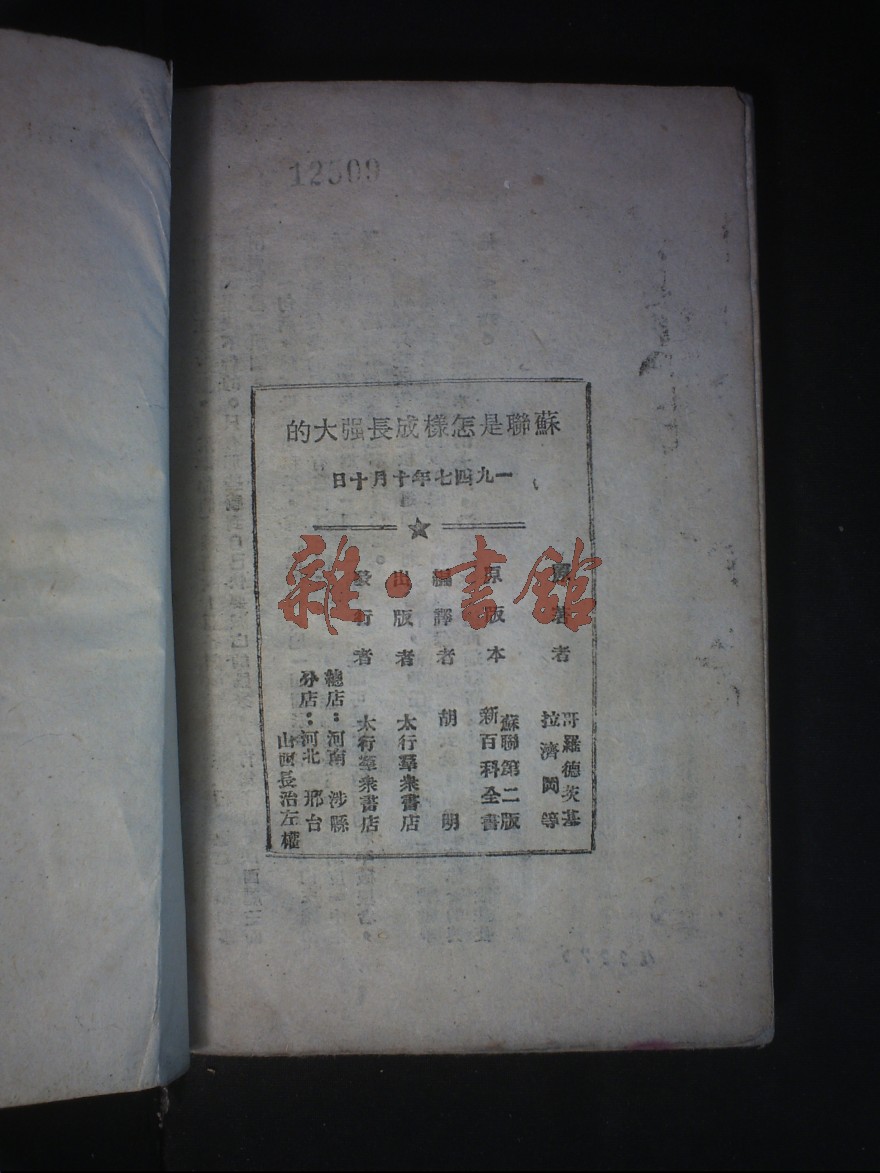 12509
蘇聯是怎樣成長强大的
一九四七年十月十日
原著者 哥羅德茨基
拉濟岡等
原版本 蘇聯第二版
新百科全書
編譯者 胡明
出版者 太行羣衆書店
發行者 太行羣衆書店
總店：河南涉縣
分店：河北邢台
山西長治左權
雜·書館